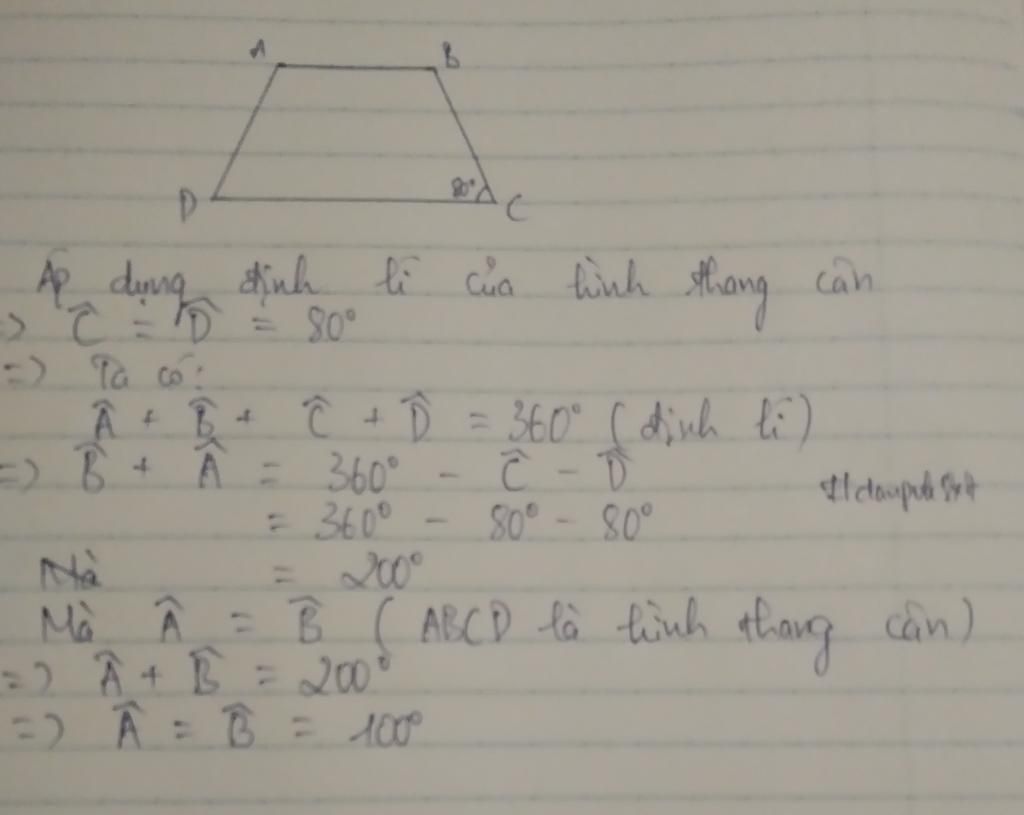 A B
80°
D C
Áp dụng định lí của hình thang cân
=> Ĉ = D̂ = 80°
=> Ta có:
Â + B̂ + Ĉ + D̂ = 360° (định lí)
=> B̂ + Â = 360° - Ĉ - D̂
= 360° - 80° - 80°
Mà = 200°
Mà Â = B̂ (ABCD là hình thang cân)
=> Â + B̂ = 200°
=> Â = B̂ = 100°